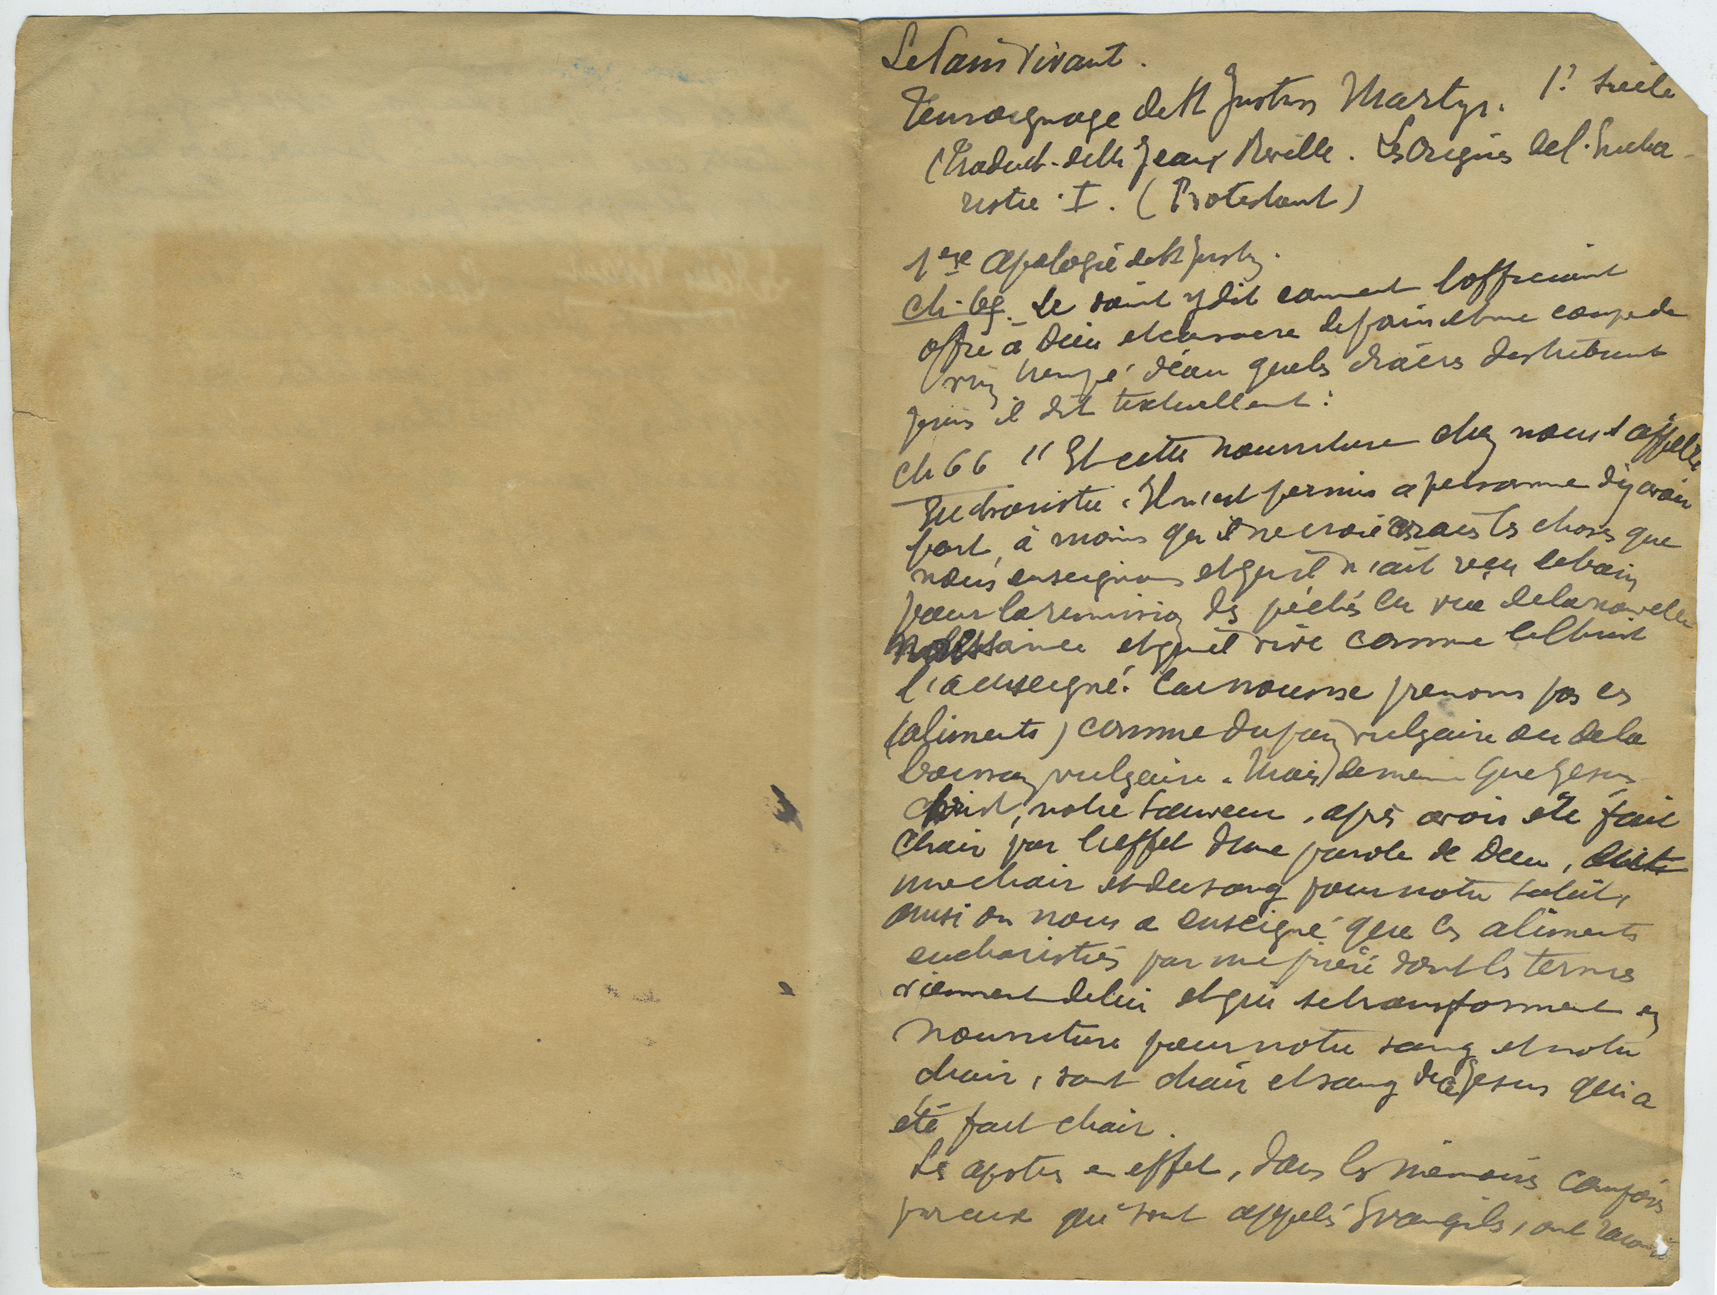 Le Pain Vivant.
Temoignage de St Justin Martyr. 1er Siècle
(Traduct. de Mr Jean Reville. Les Origines de l'Eucha-
ristie. I. (Protestant)
1ere apologie de St Justin.
Ch. 65. Le saint y dit comment l'officiant
offre à Dieu et consacre le pain et une coupe de
vin trempé d'eau que les diacres distribuent
puis il dit textuellement :
Ch 66 "Et cette nourriture chez nous s'appelle
Eucharistie. Il n'est permis a personne d'y avoir
part, à moins qu'il ne croie vraies les choses que
nous enseignons et qu'il n'ait reçu le bain
pour la remission des péchés en vue de la nouvelle
naissance et qu'il vive comme le Christ
l'a enseigné. Car nous ne prenons pas ces
(aliments) comme du pain vulgaire ou de la
boisson vulgaire. Mais de meme que Jesus
Christ, notre Sauveur, après avoir été fait
Chair par l'effet d'une parole de Dieu,
une chair et du sang pour notre salut,
ainsi on nous a enseigné que les aliments
eucharistiés par une prière dont les termes
viennent de lui et qui se transforment en
nourriture pour notre sang et notre
chair, sont chair et sang de ce Jesus qui a
été fait chair.
Les apotres en effet, dans les mémoires composés
par eux qui sont appelés Evangiles, ont raconté